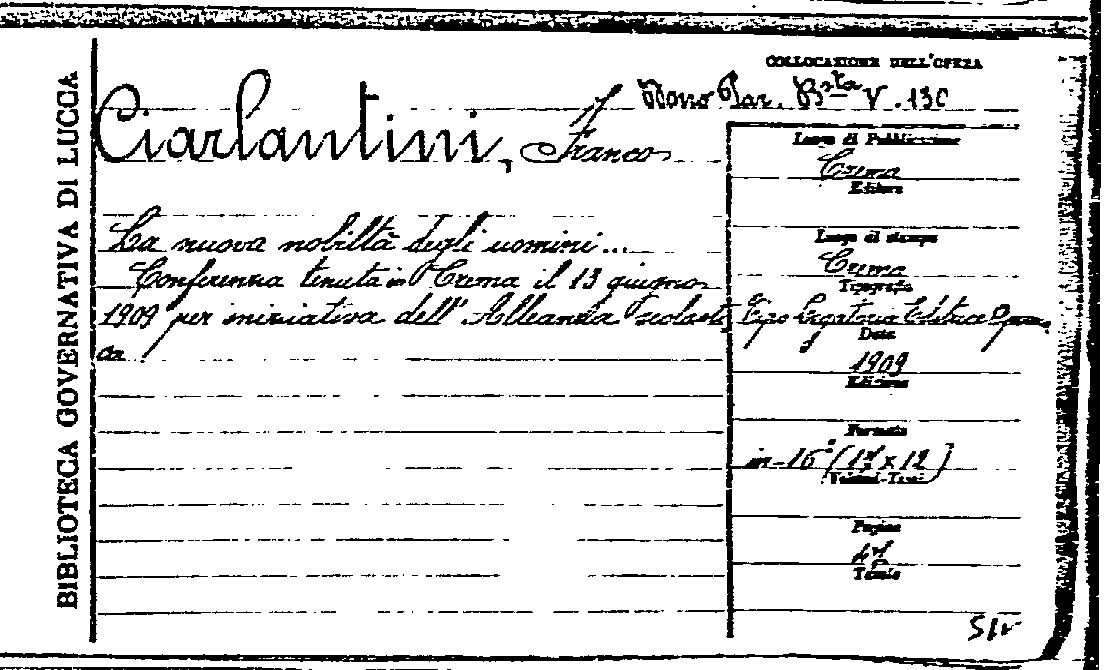 BIBLIOTECA GOVERNATIVA DI LUCCA
COLLOCAZIONE DELL'OPERA
Ciarlantini, Franco
Busta V. 130
La nuova nobiltà degli uomini...
Conferenza tenuta in Crema il 13 giugno
1909 per iniziativa dell'Alleanza scolasti
ca.
Luogo di Pubblicazione
Crema
Editore
Luogo di stampa
Crema
Tipografia
Tipo Legatoria Editrice
Data
1909
Edizione
Formato
in-16° (17 x 12)
Volumi-Tomi
Pagine
Tavole